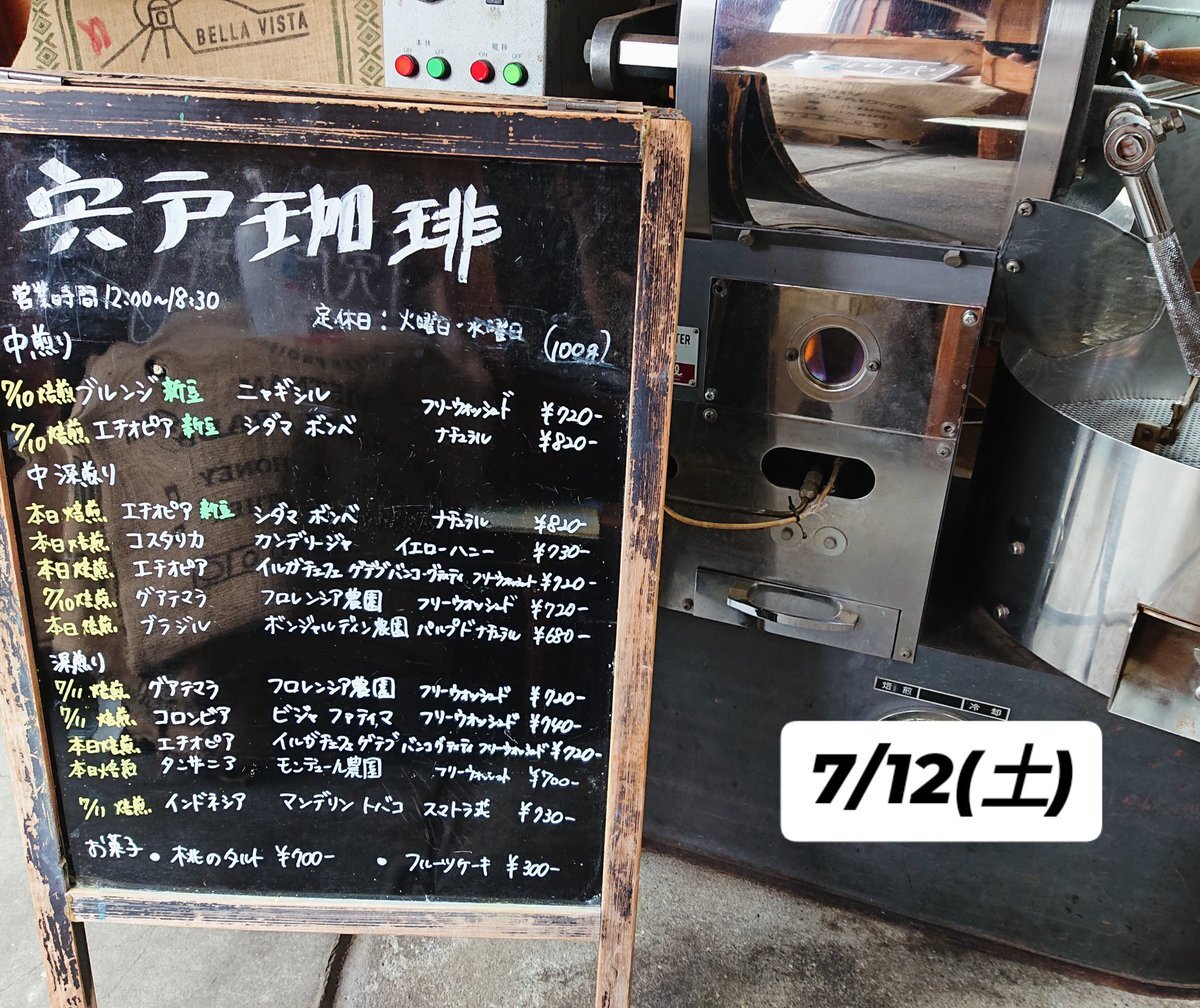 BELLA VISTA
本体
攪拌
ON OFF ON OFF
宍戸珈琲
営業時間 12:00~18:30
定休日:火曜日・水曜日 (100g)
中煎り
7/10焙煎 ブルンジ 新豆 ニャギシル フリーウォッシュド ¥720-
7/10焙煎 エチオピア 新豆 シダマ ボンベ ナチュラル ¥820-
中深煎り
本日焙煎 エチオピア 新豆 シダマ ボンベ ナチュラル ¥820-
本日焙煎 コスタリカ カンデリージャ イエローハニー ¥730-
本日焙煎 エチオピア イルガチェフェ ゲデブ バンコ・ゴティティ フリーウォッシュト ¥720-
7/10焙煎 グアテマラ フロレンシア農園 フリーウォッシュド ¥720-
本日焙煎 ブラジル ボンジャルディン農園 パルプドナチュラル ¥680-
深煎り
7/11焙煎 グアテマラ フロレンシア農園 フリーウォッシュド ¥720-
7/11焙煎 コロンビア ビジャ ファティマ フリーウォッシュド ¥740-
本日焙煎 エチオピア イルガチェフェ ゲデブ バンコゴティティ フリーウォッシュド ¥720-
本日焙煎 タンザニア モンデュール農園 フリーウォッシュト ¥700-
7/11焙煎 インドネシア マンデリン トバコ スマトラ式 ¥730-
お菓子 ・桃のタルト ¥700- ・フルーツケーキ ¥300-
焙煎 冷却
7/12(土)